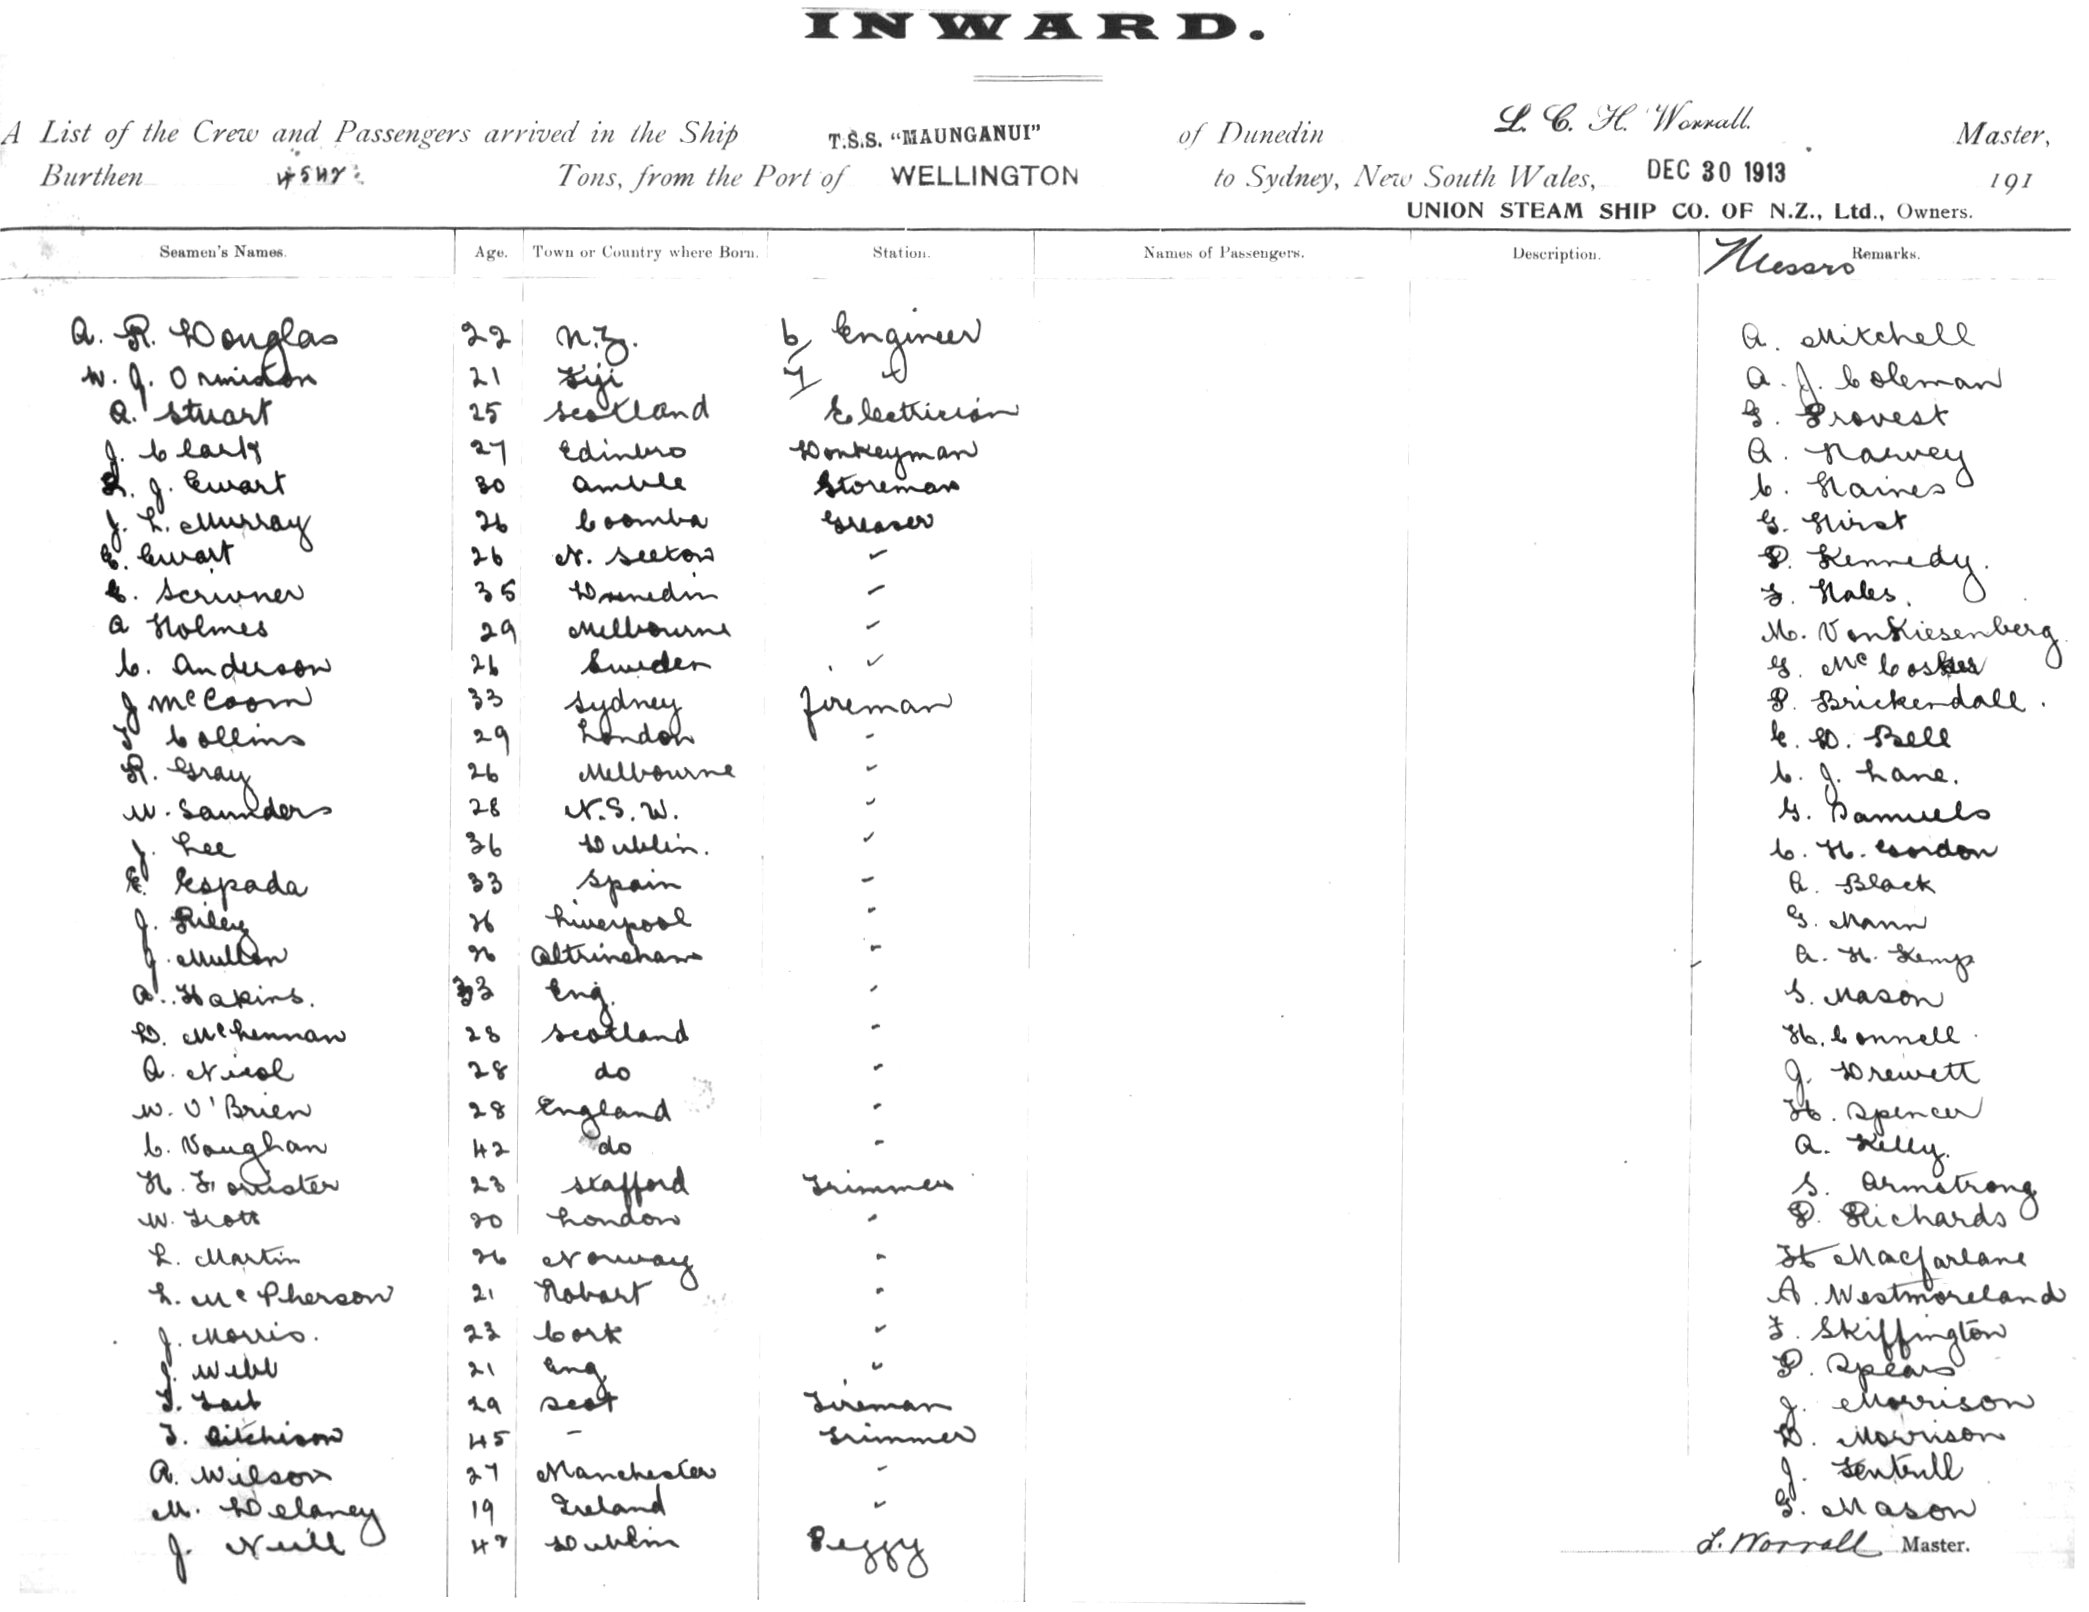 INWARD.
A List of the Crew and Passengers arrived in the Ship T.S.S. "MAUNGANUI" of Dunedin L. C. H. Worrall. Master,
Burthen Tons, from the Port of WELLINGTON to Sydney, New South Wales, DEC 30 1913 191
UNION STEAM SHIP CO. OF N.Z., Ltd., Owners.
Seamen's Names. Age. Town or Country where Born. Station. Names of Passengers. Description. Messrs Remarks.
A. R. Douglas 22 N.Z. 6 Engineer A. Mitchell
W. J. Ormiston 21 Fiji 7 A. J. Coleman
A. Stuart 25 Scotland Electrician G. Provest
J. Clark 27 Edinbro Donkeyman A. Harvey
R. J. Ewart 30 Amble Storeman C. Haines
J. L. Murray 26 Coomba Greaser G. Hirst
E. Ewart 26 N. Seeton " P. Kennedy.
E. Scrivner 35 Dunedin " F. Hales.
A Holmes 29 Melbourne " M. Von Kiesenberg
C. Anderson 26 Sweden " G. McCosker
J McCoom 33 Sydney Fireman P. Brickendall.
T Collins 29 London " E. D. Bell
R. Gray 26 Melbourne " C. J. Lane.
W. Saunders 28 N.S.W. " G. Samuels
J. Lee 36 Dublin. " C. H. Gordon
E. Espada 33 Spain " A. Black
J. Riley 26 Liverpool " G. Mann
J. Mullen 26 Altrincham " A. H. Kemp
A. Hakins. 33 Eng. " G. Mason
D. McLennan 28 Scotland " H. Connell
A. Nicol 28 do " J. Drewett
W. O'Brien 28 England " H. Spencer
C. Vaughan 42 do " A. Kelly.
H. Forrister 23 Stafford Trimmer S. Armstrong
W. Trott 20 London " P. Richards
L. Martin 26 Norway " H Macfarlane
L. McPherson 21 Hobart " A. Westmoreland
J. Morris. 23 Cork " F. Skiffington
J. Webb 21 Eng " P. Spears
T. Tait 29 Scot Fireman J. Morrison
T. Aitchison 45 - Trimmer D. Morrison
A. Wilson 27 Manchester " J.
M. Delaney 19 Ireland " G. Mason
J. Neill 47 Dublin Peggy L. Worrall Master.